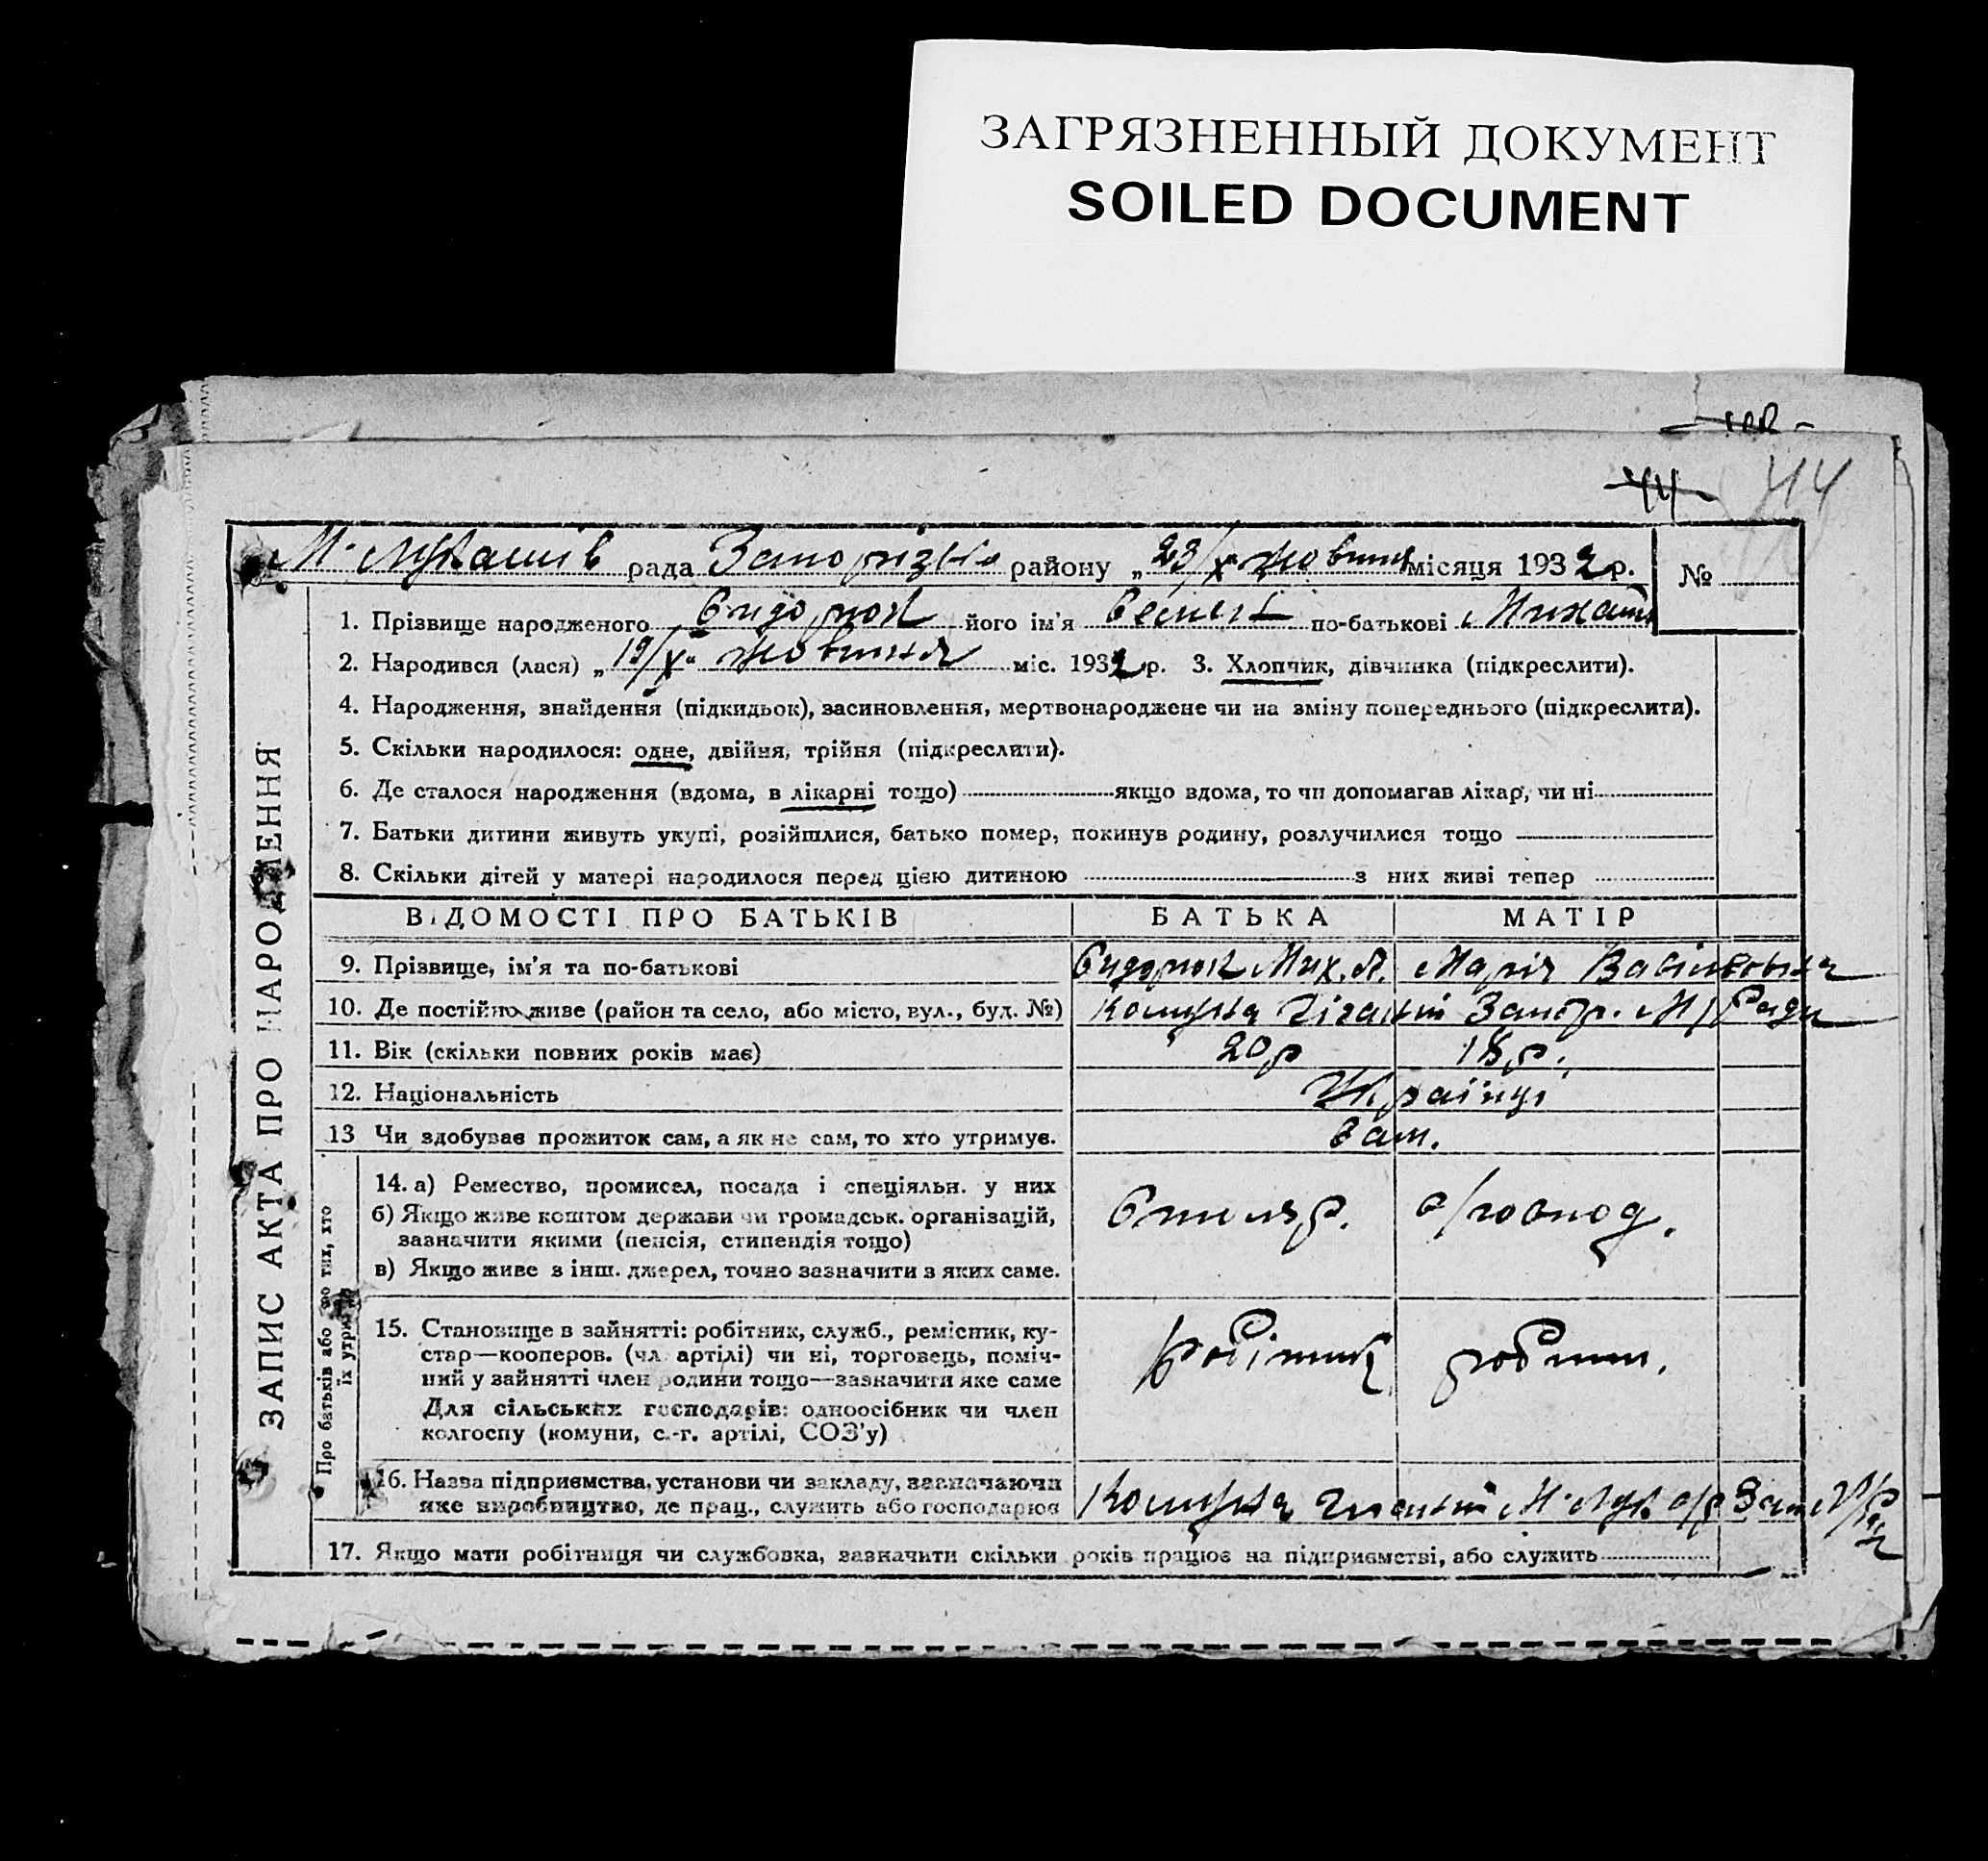 ЗАГРЯЗНЕННЫЙ ДОКУМЕНТ
SOILED DOCUMENT
44
44
ЗАПИС АКТА ПРО НАРОДЖЕННЯ
М. Лукашів рада Запорізько району „23/X жовтня місяця 1932 р. №
1. Прізвище народженого Сидорюк його ім'я Семен по-батькові Михайл
2. Народився (лася) „19/X жовтня міс. 1932 р. 3. Хлопчик, дівчинка (підкреслити).
4. Народження, знайдення (підкидьок), засиновлення, мертвонароджене чи на зміну попереднього (підкреслити).
5. Скільки народилося: одне, двійня, трійня (підкреслити).
6. Де сталося народження (вдома, в лікарні тощо) якщо вдома, то чи допомагав лікар, чи ні
7. Батьки дитини живуть укупі, розійшлися, батько помер, покинув родину, розлучилися тощо
8. Скільки дітей у матері народилося перед цією дитиною з них живі тепер
ВІДОМОСТІ ПРО БАТЬКІВ БАТЬКА МАТІР
9. Прізвище, ім'я та по-батькові Сидорюк Мих. Марія Васильовна
10. Де постійно живе (район та село, або місто, вул., буд. №) Комуна Гігант Запор. М/Ради
11. Вік (скільки повних років має) 20р 18р.
12. Національність Українці
13 Чи здобуває прожиток сам, а як не сам, то хто утримує. Сам.
Про батьків або про тих, хто їх утримує
14. а) Ремество, промисел, посада і спеціяльн. у них
б) Якщо живе коштом держави чи громадськ. організацій,
зазначити якими (пенсія, стипендія тощо)
в) Якщо живе з інш. джерел, точно зазначити з яких саме.
Столяр. с/господ.
15. Становище в зайнятті: робітник, служб., ремісник, ку-
стар—кооперов. (чл. артілі) чи ні, торговець, поміч-
ний у зайнятті член родини тощо—зазначити яке саме
Для сільських господарів: одноосібник чи член
колгоспу (комуни, с.-г. артілі, СОЗ'у)
робітник робітн.
16. Назва підприємства, установи чи закладу, зазначаючи
яке виробництво, де прац., служить або господарює
Комуна Гігант М. Лук с/р Зап М/Рад
17. Якщо мати робітниця чи службовка, зазначити скільки років працює на підприємстві, або служить